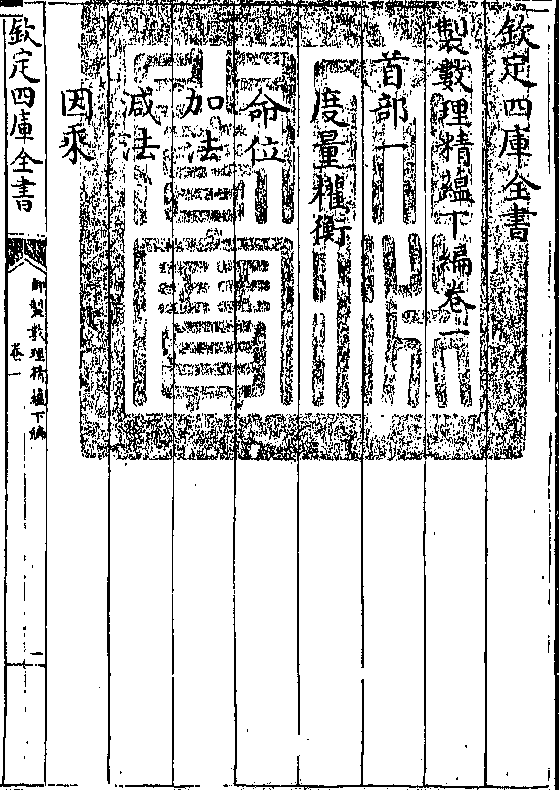 欽定四庫全書
製數理精藴下編卷一
首部一
度量權衡
命位
加法
减法
因乘
欽定四庫全書
御製數理精藴下編
卷一
一